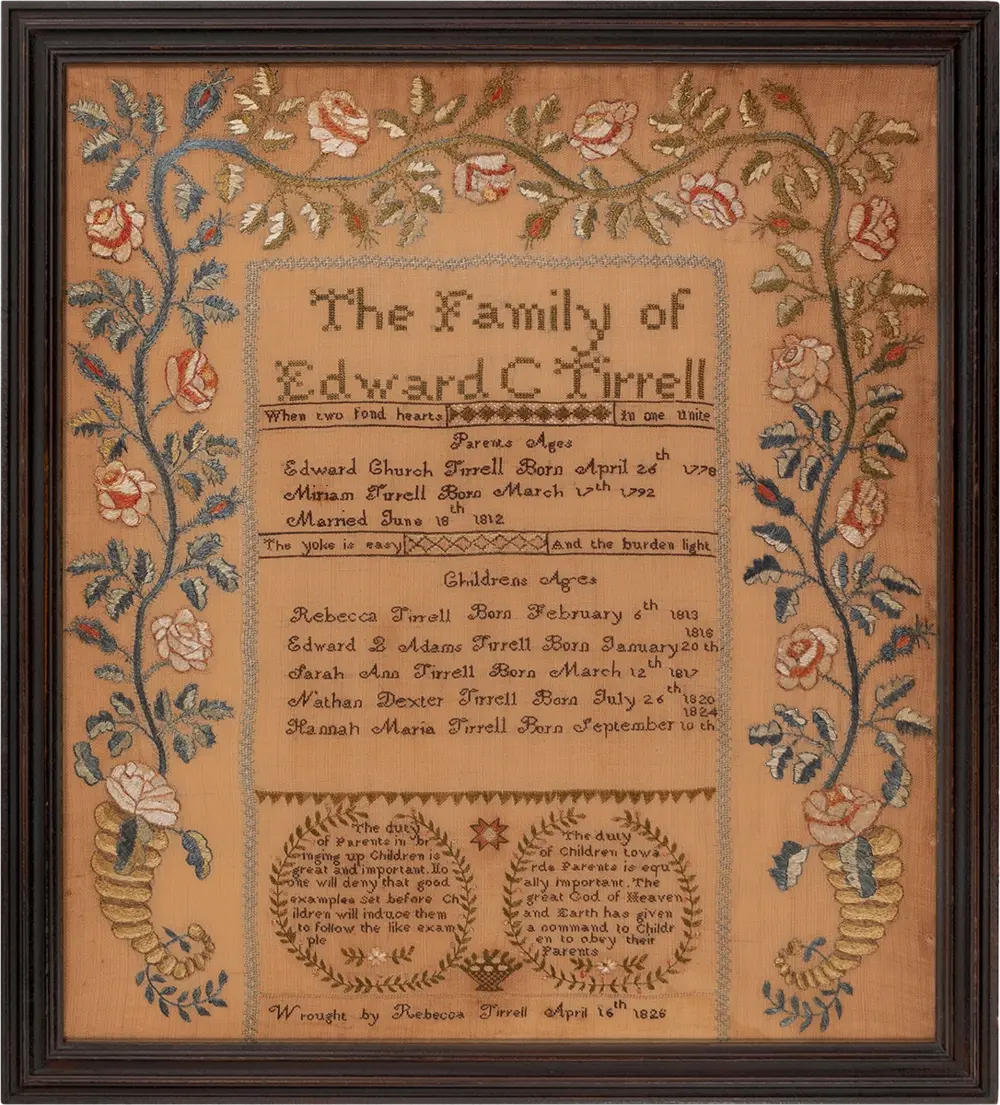 The Family of
Edward C Tirrell
When two fond hearts In one unite
Parents Ages
Edward Church Tirrell Born April 26th 1778
Miriam Tirrell Born March 17th 1792
Married June 18th 1812
The yoke is easy And the burden light
Childrens Ages
Rebecca Tirrell Born February 6th 1813
Edward L Adams Tirrell Born January 20th 1816
Sarah Ann Tirrell Born March 12th 1817
Nathan Dexter Tirrell Born July 26th 1820
Hannah Maria Tirrell Born September 10th 1824
The duty
of Parents in br
inging up Children is
great and important. No
one will deny that good
examples set before Ch
ildren will induce them
to follow the like exam
ple
The duty
of Children towa
rds Parents is equ
ally important. The
great God of Heaven
and Earth has given
a command to Childr
en to obey their
Parents
Wrought by Rebecca Tirrell April 16th 1826